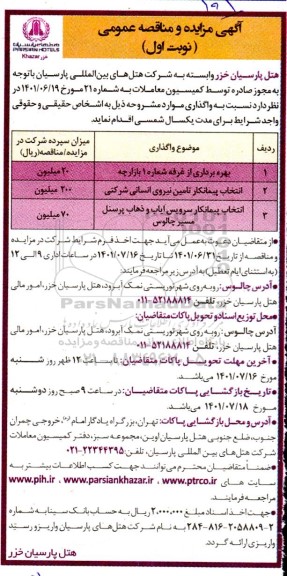 آگهی مزایده و مناقصه عمومی
( نوبت اول )
PARSIAN HOTEL
Khazar خزر
هتل پارسیان خزر وابسته به شرکت هتل های بین المللی پارسیان باتوجه
به مجوز صادره توسط کمیسیون معاملات به شماره ۲۱ مورخ ۱۴۰۱/۰۶/۱۹ در
نظر دارد نسبت به واگذاری موارد مشروحه ذیل به اشخاص حقیقی و حقوقی
واجد شرایط برای مدت یکسال شمسی اقدام نماید.
ردیف موضوع واگذاری میزان سپرده شرکت در
مزایده/مناقصه(ریال)
۱ بهره برداری از غرفه شماره ۱ بازارچه ۲۰ میلیون
۲ انتخاب پیمانکار تامین نیروی انسانی شرکتی ۲۰۰ میلیون
۳ انتخاب پیمانکار سرویس ایاب و ذهاب پرسنل
مسیر چالوس ۷۰ میلیون
• از متقاضیان دعوت به عمل می آید جهت اخذ فرم شرایط شرکت در مزایده
و مناقصه از تاریخ ۱۴۰۱/۰۶/۳۱ تا تاریخ ۱۴۰۱/۰۷/۱۶ در ساعات اداری ۹ الی ۱۲
(به استثنای ایام تعطیل) به آدرس زیر مراجعه فرمایند:
• آدرس چالوس: رو به روی شهر توریستی نمک آبرود، هتل پارسیان خزر، امور مالی
هتل پارسیان خزر، تلفن ۵۲۱۸۸۸۱۴-۰۱۱
• محل توزیع اسناد و تحویل پاکات متقاضیان:
آدرس چالوس: رو به روی شهر توریستی نمک آبرود، هتل پارسیان خزر، امور مالی
هتل پارسیان خزر، تلفن ۵۲۱۸۸۸۱۴-۰۱۱
• آخرین مهلت تحویل پاکات متقاضیان: تا ساعت ۱۲ ظهر روز شنبه
مورخ ۱۴۰۱/۰۷/۱۶ می باشد.
• تاریخ بازگشایی پاکات متقاضیان: در ساعت ۹ صبح روز دوشنبه
مورخ ۱۴۰۱/۰۷/۱۸ می باشد.
• آدرس و محل بازگشایی پاکات: تهران، بزرگراه یادگار امام، خروجی چمران
جنوب، ضلع جنوبی هتل پارسیان اوین، مجموعه سبز، دفتر کمیسیون معاملات
شرکت هتل های بین المللی پارسیان، تلفن: ۲۲۳۴۴۳۹۵-۰۲۱
• ضمناً متقاضیان محترم می توانند جهت کسب اطلاعات بیشتر به
سایت های www.ptrco.ir ، www.parsiankhazar.ir ، www.pih.ir
مراجعه فرمایند.
• جهت اخذ اسناد مبلغ ۲،۰۰۰،۰۰۰ ریال به حساب بانک سینا به شماره
۲-۲۰۵۸۸۰۹-۸۱۶-۲۸۴ به نام شرکت هتل های پارسیان واریز و رسید
واریزی ارائه گردد.
هتل پارسیان خزر